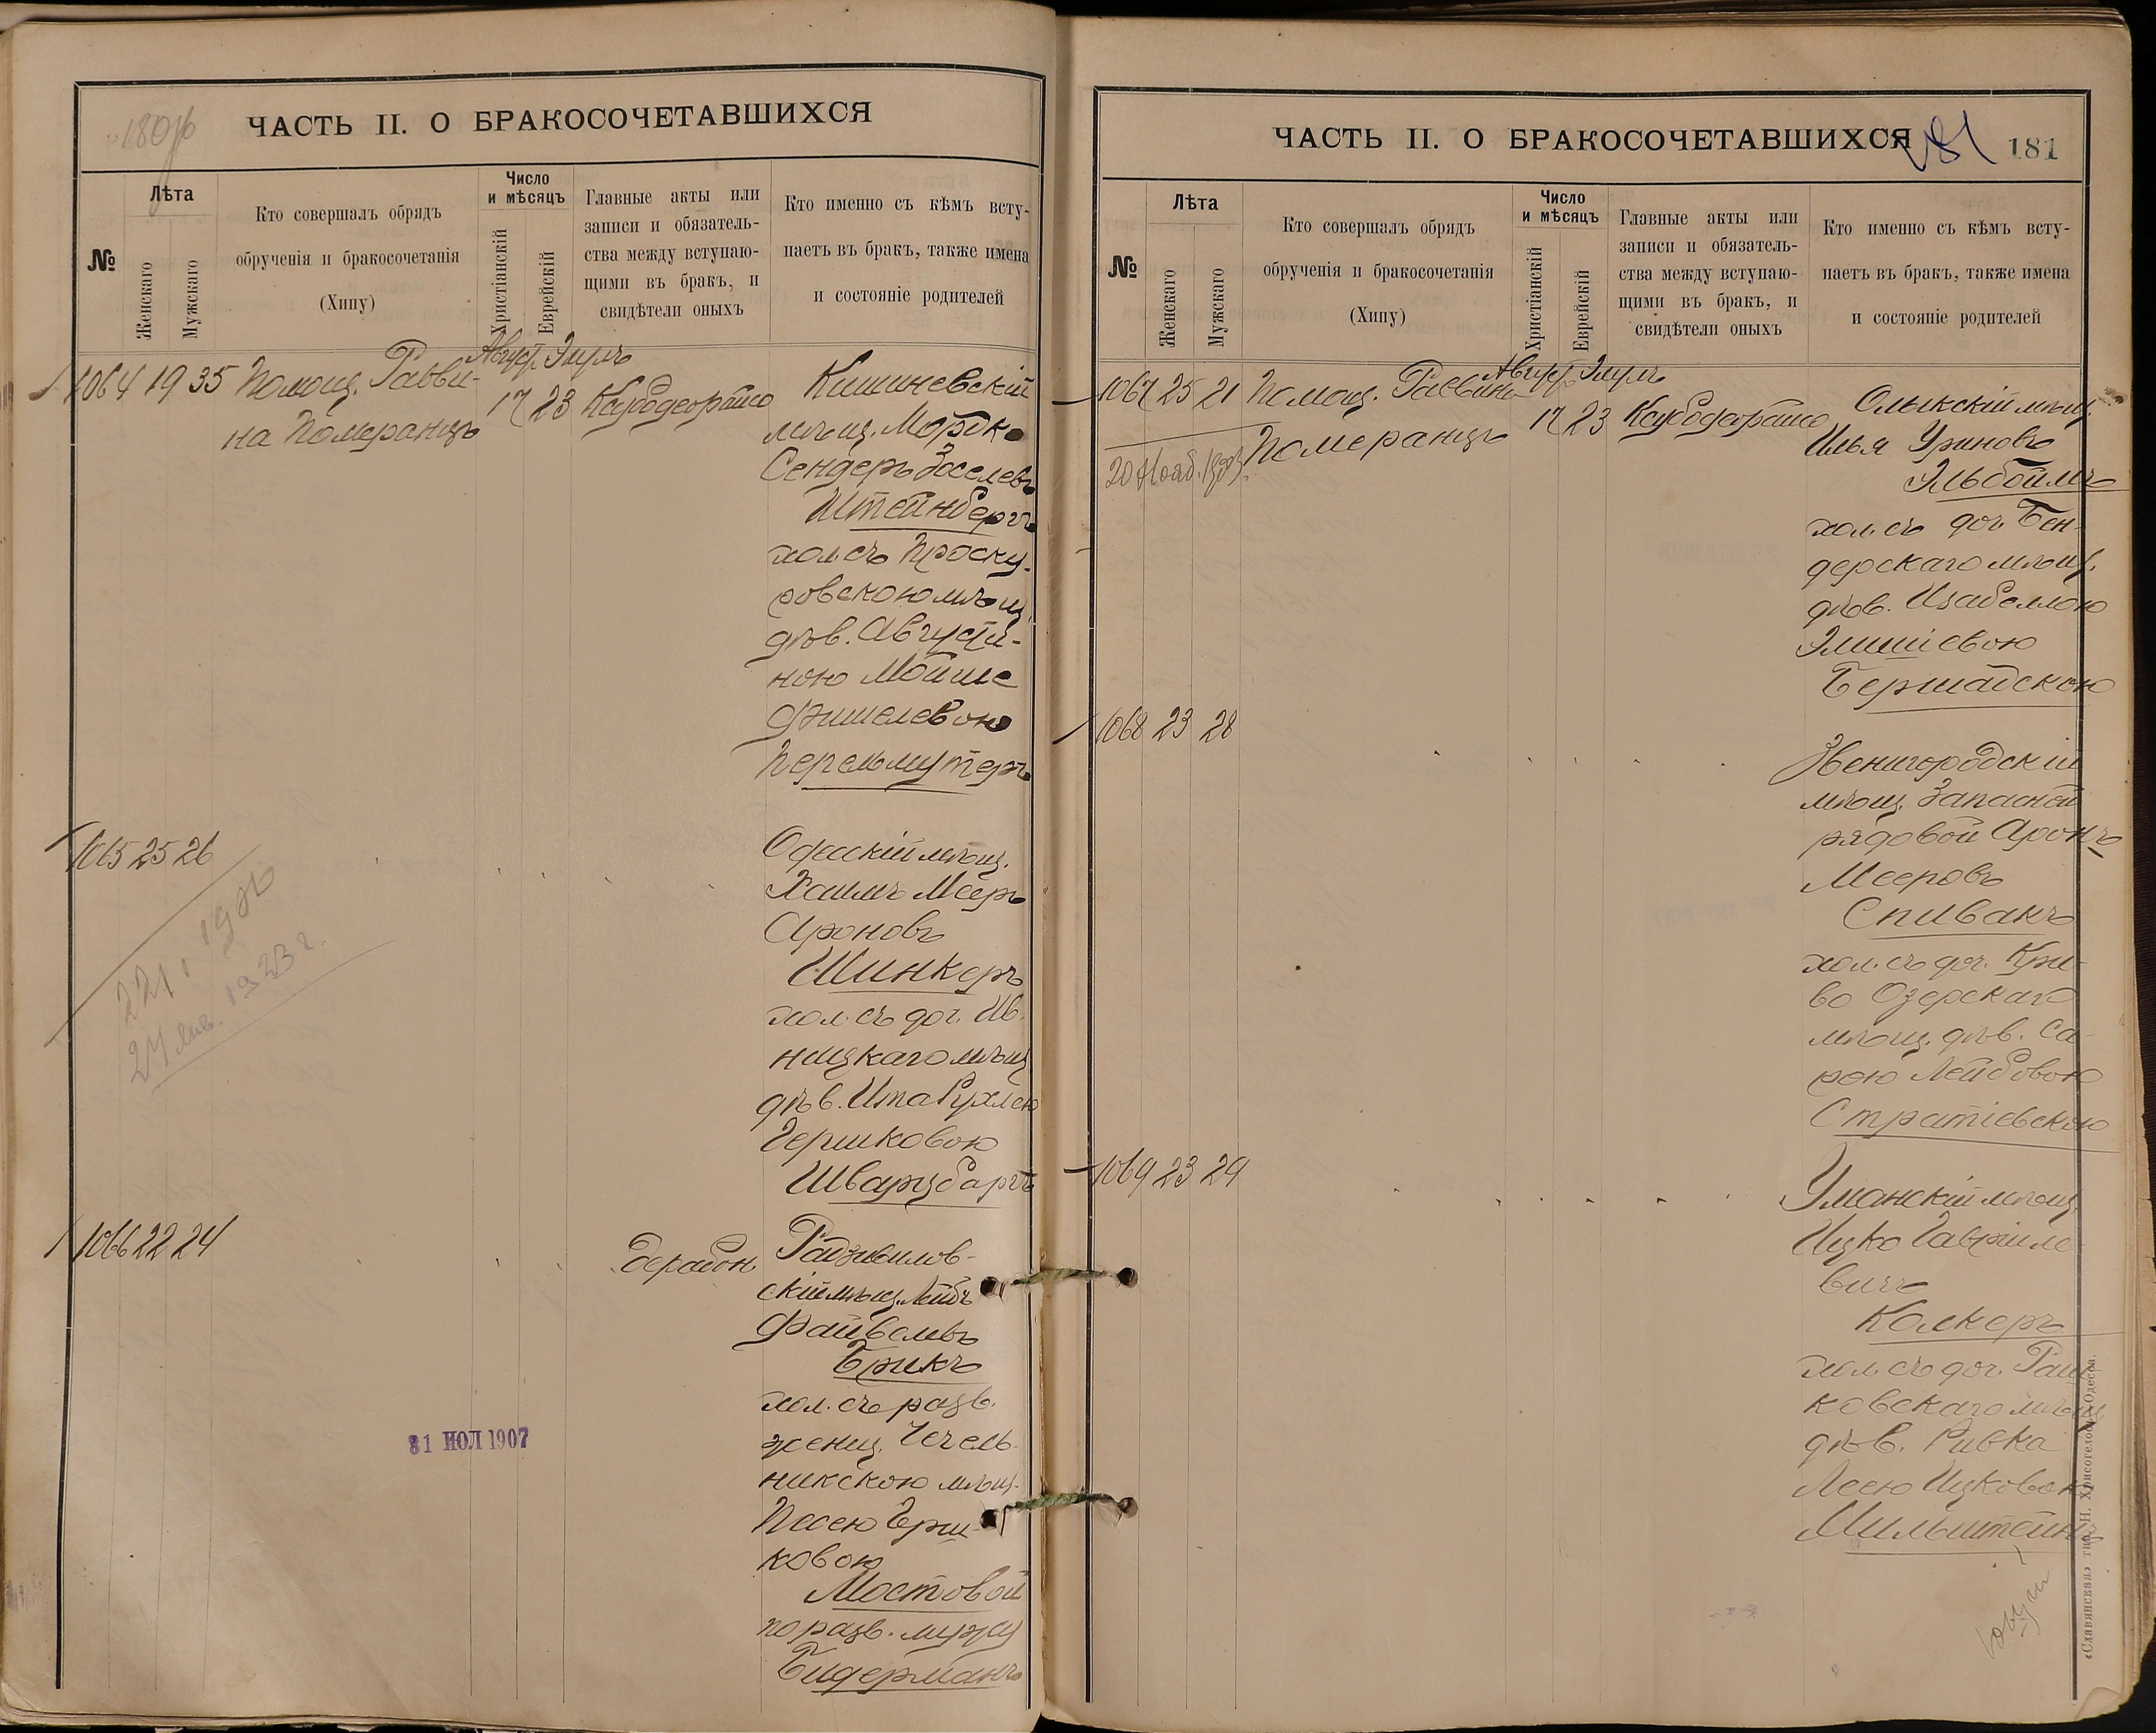 180об
ЧАСТЬ II. О БРАКОСОЧЕТАВШИХСЯ
№
Лѣта
Женскаго
Мужскаго
Кто совершалъ обрядъ
обрученія и бракосочетанія
(Хипу)
Число
и мѣсяцъ
Христіанскій
Еврейскій
Главные акты или
записи и обязатель-
ства между вступаю-
щими въ бракъ, и
свидѣтели оныхъ
Кто именно съ кѣмъ всту-
паетъ въ бракъ, также имена
и состояніе родителей
1064 19 35 Помощ. Равви-
на Померанцъ
Август. Элулъ
17 23
Кишиневскій
мѣщ. Мордко
Сендеръ Іоселевъ
Штейнбергъ
хол. съ Проску-
ровскою мѣщ.
дѣв. Августи-
ною Мойше
Фишелевою
Перельмутеръ
1065 25 26
24 янв. 1923 г.
Одесскій мѣщ.
Хаимъ Мееръ
Ароновъ
Шинкеръ
хол. съ доч. Ив-
ницкаго мѣщ.
дѣв. Ита Рухлею
Гершковою
Шварцбаргъ
1066 22 24
Радзивилов-
скій мѣщ. Лейбъ
Файвелевъ
Брикъ
хол. съ разв.
женщ. Чечель-
никскою мѣщ.
Песею Герш-
ковою
Мостовой
по разв. мужу
Бидерманъ
31 ИЮЛ 1907
ЧАСТЬ II. О БРАКОСОЧЕТАВШИХСЯ
181
181
№
Лѣта
Женскаго
Мужскаго
Кто совершалъ обрядъ
обрученія и бракосочетанія
(Хипу)
Число
и мѣсяцъ
Христіанскій
Еврейскій
Главные акты или
записи и обязатель-
ства между вступаю-
щими въ бракъ, и
свидѣтели оныхъ
Кто именно съ кѣмъ всту-
паетъ въ бракъ, также имена
и состояніе родителей
1067 25 21 Помощ. Раввина
Померанцъ
Август. Элулъ
17 23
20 Нояб.
Олыкскій мѣщ.
Илья Уриновъ
Эльбоймъ
хол. съ доч. Бен-
дерскаго мѣщ.
дѣв. Изабеллою
Элишіевою
Бершадскою
1068 23 28
Звенигородскій
мѣщ. Запасной
рядовой Аронъ
Мееровъ
Спивакъ
хол. съ доч. Кри-
во Озерскаго
мѣщ. дѣв. Са-
рою Лейбовою
Стратіевскою
1069 23 29
Уманскій мѣщ.
Ицко Гавриле-
вичъ
Колкеръ
хол. съ доч. Раш-
ковскаго мѣщ.
дѣв. Ривка
Леею Ицковою
Мильштейнъ
«Славянская» тип. Н. Хрисогелосъ, Одесса.